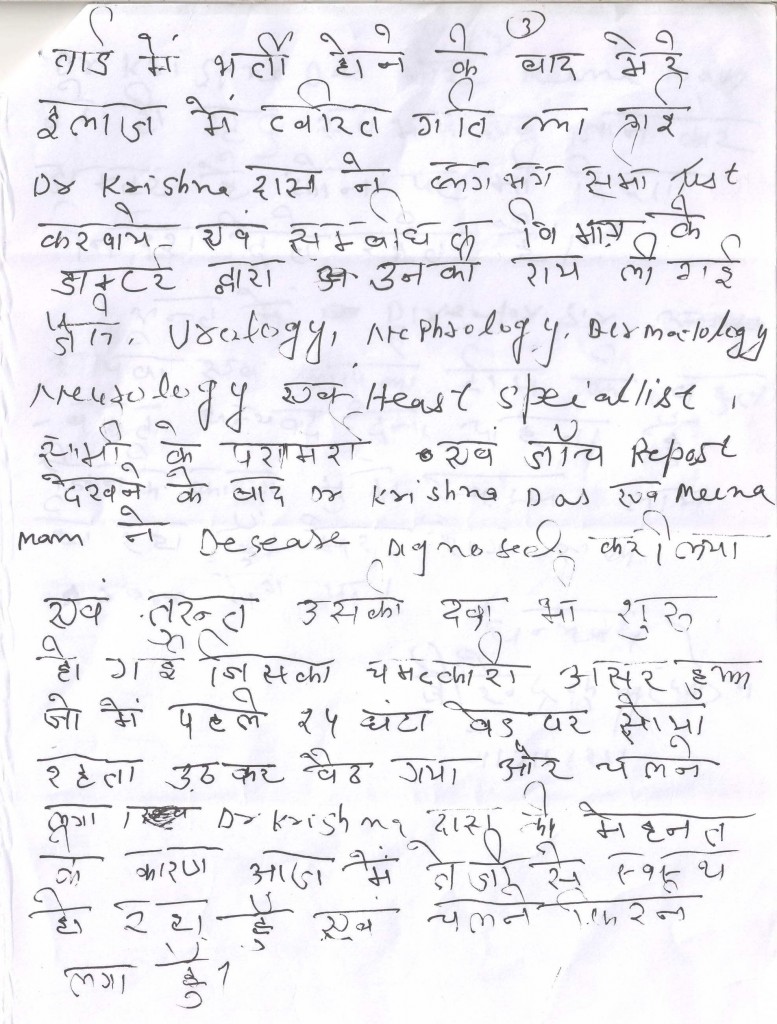 3
वार्ड में भर्ती होने के बाद मेरे
इलाज में त्वरित गति आ गई
Dr Krishna दास ने लगभग सभी Test
करवाये एवं सम्बंधित विभाग के
डाक्टर द्वारा उनकी राय ली गई
Urology, Nephrology, Dermatology
Neurology एवं Heart Speallist,
सभी के परामर्श एवं जाँच Report
देखने के बाद Dr Krishna Das एवं Meena
mam ने Desease Dignosed कर लिया
एवं तुरन्त उसकी दवा भी शुरू
हो गई जिसका चमत्कारी असर हुआ
जो मैं पहले २४ घंटा बेड पर सोया
रहता उठकर बैठ गया और चलने
लगा। Dr Krishna दास की मेहनत
के कारण आज मैं तेजी से स्वस्थ
हो रहा हूँ एवं चलने फिरने
लगा हूँ।